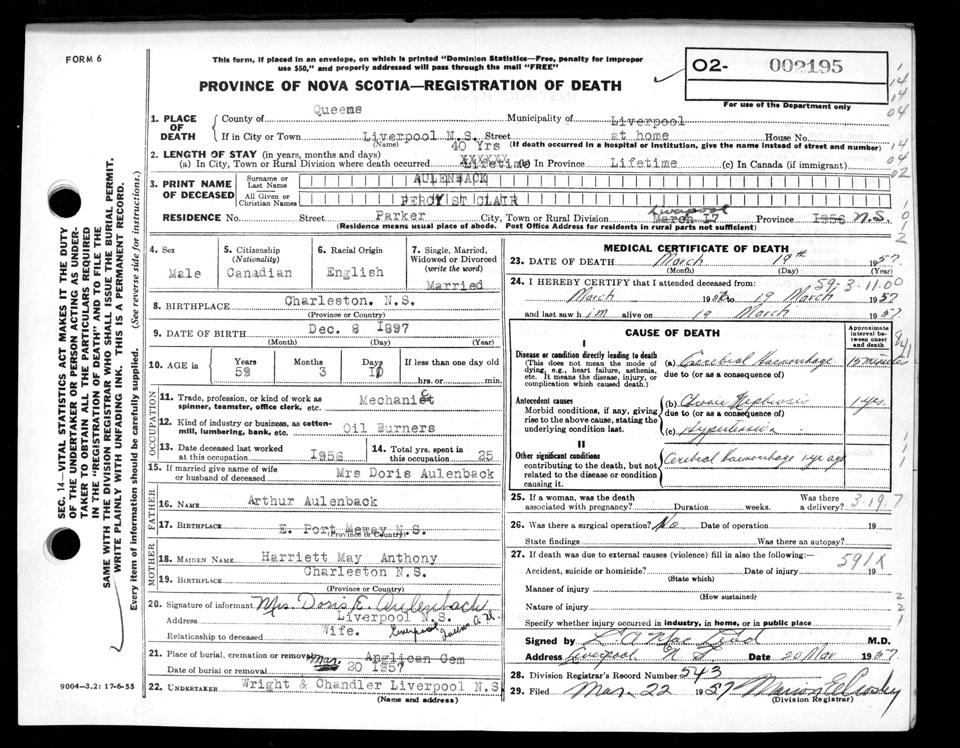 FORM 6
This form, if placed in an envelope, on which is printed "Dominion Statistics—Free, penalty for improper
use $50," and properly addressed will pass through the mail "FREE"
PROVINCE OF NOVA SCOTIA—REGISTRATION OF DEATH
O2- 002195
For use of the Department only
1. PLACE OF DEATH County of Queens Municipality of Liverpool
If in City or Town Liverpool N.S. Street at home House No.
(Name) (If death occurred in a hospital or institution, give the name instead of street and number)
2. LENGTH OF STAY (in years, months and days) 40 Yrs
(a) In City, Town or Rural Division where death occurred Lifetime (b) In Province Lifetime (c) In Canada (if immigrant)
3. PRINT NAME OF DECEASED Surname or Last Name AULENBACK
All Given or Christian Names PERCY ST CLAIR
RESIDENCE No. Street Parker City, Town or Rural Division Liverpool March 17 Province 1956 N.S.
(Residence means usual place of abode. Post Office Address for residents in rural parts not sufficient)
4. Sex Male
5. Citizenship (Nationality) Canadian
6. Racial Origin English
7. Single, Married, Widowed or Divorced (write the word) Married
8. BIRTHPLACE Charleston. N.S.
(Province or Country)
9. DATE OF BIRTH Dec. 8 1897
(Month) (Day) (Year)
10. AGE in Years 59 Months 3 Days 11 If less than one day old
hrs. or min.
OCCUPATION
11. Trade, profession, or kind of work as spinner, teamster, office clerk, etc. Mechanic
12. Kind of industry or business, as cotton-mill, lumbering, bank, etc. Oil Burners
13. Date deceased last worked at this occupation 1956 14. Total yrs. spent in this occupation 25
15. If married give name of wife or husband of deceased Mrs Doris Aulenback
FATHER
16. NAME Arthur Aulenback
17. BIRTHPLACE E. Port Meway N.S.
(Province or Country)
MOTHER
18. MAIDEN NAME Harriett May Anthony
19. BIRTHPLACE Charleston N.S.
(Province or Country)
20. Signature of informant Mrs. Doris E. Aulenback
Address Liverpool N.S. Liverpool Queens Co. N.
Relationship to deceased Wife.
21. Place of burial, cremation or removal Anglican Cem
Date of burial or removal Mar. 20 1957
22. UNDERTAKER Wright & Chandler Liverpool N.S
(Name and address)
MEDICAL CERTIFICATE OF DEATH
23. DATE OF DEATH March 19th 1957
(Month) (Day) (Year)
24. I HEREBY CERTIFY that I attended deceased from: 59-3-11.00
March 1957 to 19 March 1957
and last saw him alive on 19 March 1957
CAUSE OF DEATH
Approximate interval between onset and death
I
Disease or condition directly leading to death
(This does not mean the mode of dying, e.g., heart failure, asthenia, etc. It means the disease, injury, or complication which caused death.)
(a) Cerebral haemorrhage 15 minutes
due to (or as a consequence of)
Antecedent causes
Morbid conditions, if any, giving rise to the above cause, stating the underlying condition last.
(b) Chronic Nephrosis 1 yr.
due to (or as a consequence of)
(c) Hypertension
II
Other significant conditions
contributing to the death, but not related to the disease or condition causing it.
Cerebral haemorrhage 1 yr ago
25. If a woman, was the death associated with pregnancy? Duration weeks. Was there a delivery? 3.19.7
26. Was there a surgical operation? No Date of operation 19
State findings Was there an autopsy?
27. If death was due to external causes (violence) fill in also the following:— 591X
Accident, suicide or homicide? Date of injury 19
(State which)
Manner of injury
(How sustained)
Nature of injury
Specify whether injury occurred in industry, in home, or in public place
Signed by L. A. MacLeod M.D.
Address Liverpool N.S. Date 20 Mar 1957
28. Division Registrar's Record Number 543
29. Filed Mar. 22 1957 Marion E. Crosby
(Division Registrar)
SEC. 14—VITAL STATISTICS ACT MAKES IT THE DUTY
OF THE UNDERTAKER OR PERSON ACTING AS UNDER-
TAKER "TO OBTAIN ALL THE PARTICULARS REQUIRED
IN THE "REGISTRATION OF DEATH" AND TO FILE THE
SAME WITH THE DIVISION REGISTRAR WHO SHALL ISSUE THE BURIAL PERMIT.
WRITE PLAINLY WITH UNFADING INK. THIS IS A PERMANENT RECORD.
Every item of information should be carefully supplied. (See reverse side for instructions.)
9004—3.2: 17-6-55